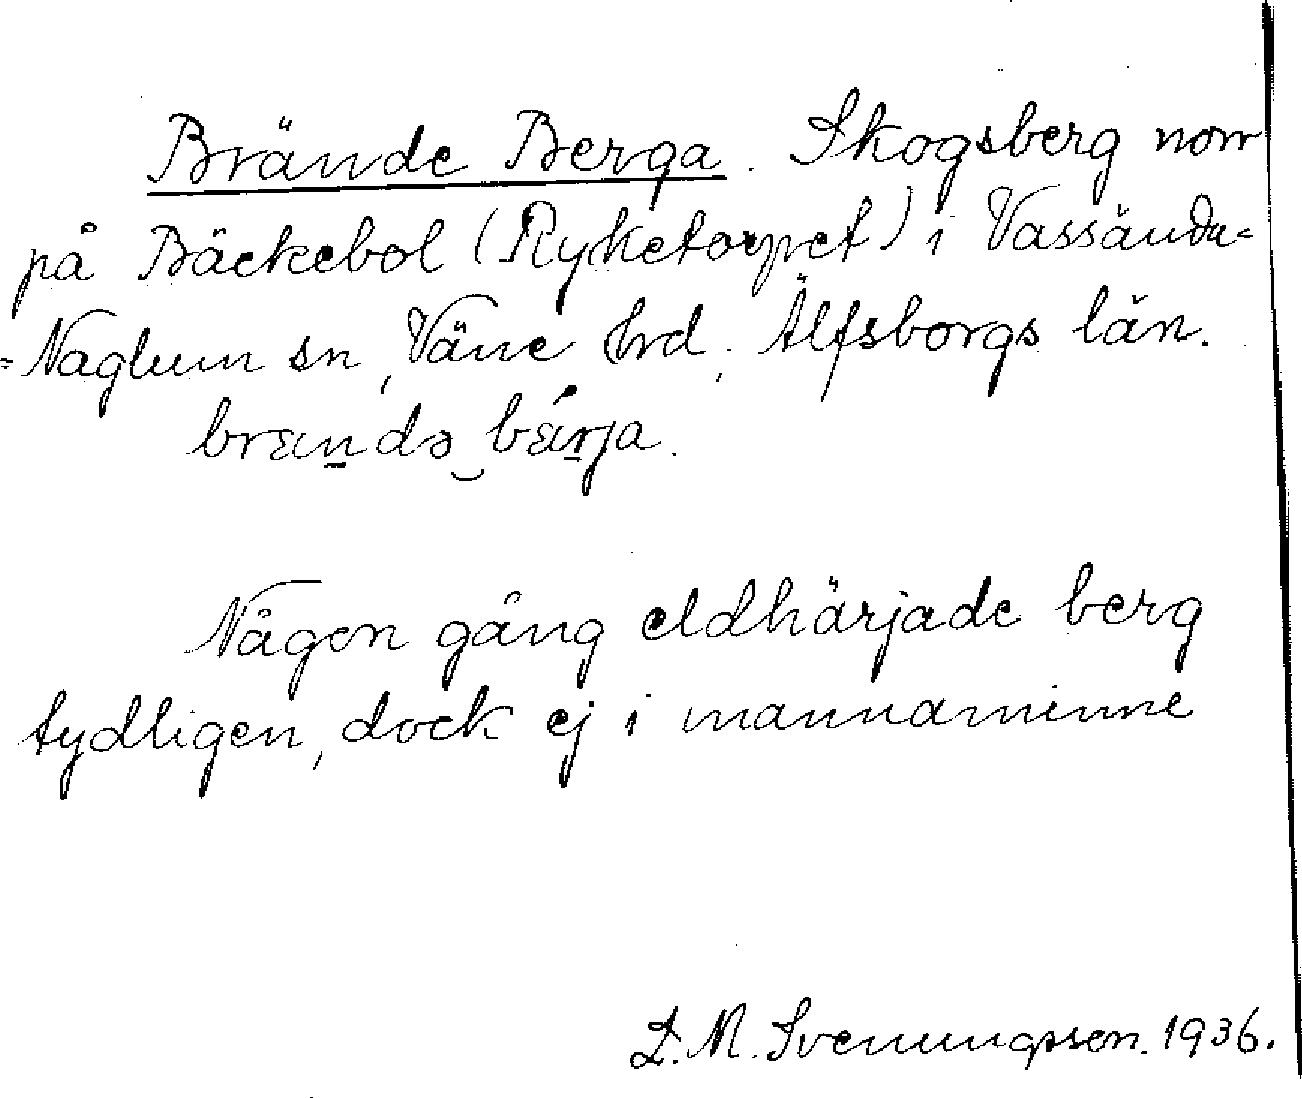 Brände Berga. Skogsberg norr
på Bäckebol (Ryketorpet) i Vassända-
-Naglum sn, Väne hrd, Älfsborgs län.
brændə bærja.
Någon gång eldhärjade berg
tydligen, dock ej i mannaminne
L. M. Svenungsson. 1936.